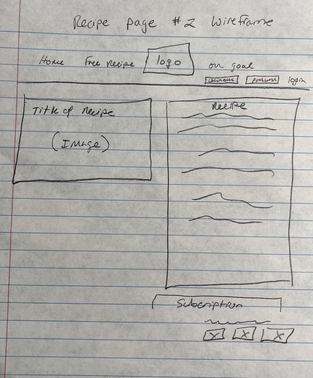 Recipe page #2 Wireframe
Home Free Recipe logo our goal
username password login
Title of Recipe
(Image)
Recipe
Subscription
X X X